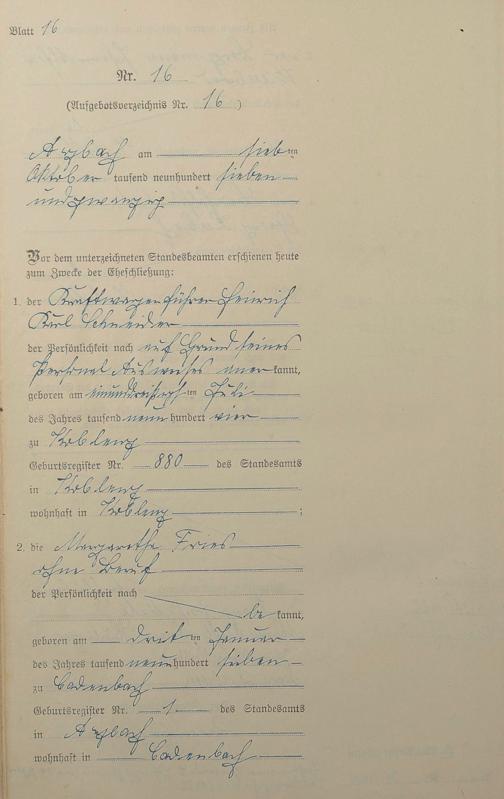 Blatt 16
Nr. 16
(Aufgebotsverzeichnis Nr. 16)
Arzbach am sieb ten
Oktober tausend neunhundert sieben
undzwanzig
Vor dem unterzeichneten Standesbeamten erschienen heute
zum Zwecke der Eheschließung:
1. der Kraftwagenführer Heinrich
Karl Schneider
der Persönlichkeit nach auf Grund seines
Personal Ausweises aner kannt,
geboren am einunddreißigs ten Juli
des Jahres tausend neun hundert vier
zu Koblenz
Geburtsregister Nr. 880 des Standesamts
in Koblenz
wohnhaft in Koblenz ;
2. die Margarethe Fries
ohne Beruf
der Persönlichkeit nach
be kannt,
geboren am drit ten Januar
des Jahres tausend neun hundert sieben
zu Cadenbach
Geburtsregister Nr. 1 des Standesamts
in Arzbach
wohnhaft in Cadenbach